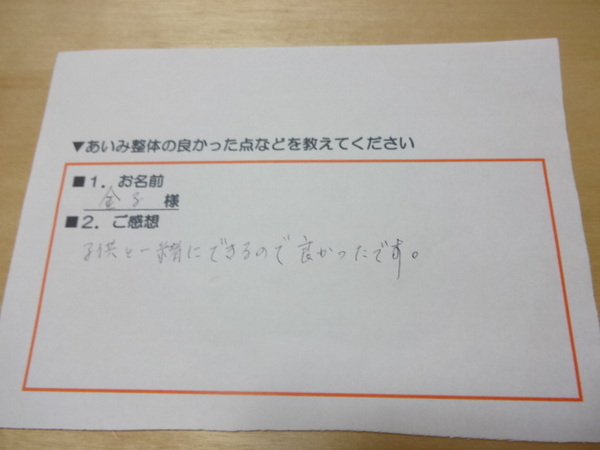 ▼あいみ整体の良かった点などを教えてください
■1．お名前
金子 様
■2．ご感想
子供と一緒にできるので良かったです。